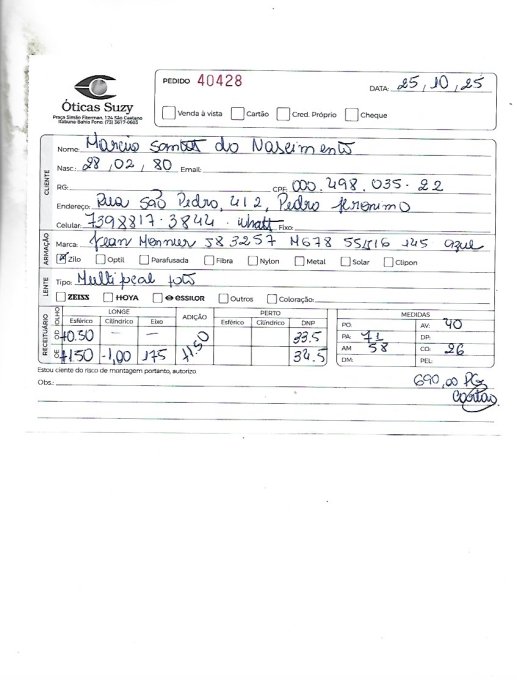 PEDIDO 40428
DATA: 25, 10, 25
Óticas Suzy
Praça Simão Fiterman, 124 São Caetano
Itabuna Bahia Fone: (73) 3617-0603
Venda à vista Cartão Cred. Próprio Cheque
CLIENTE
Nome: Marcio do Nascimento
Nasc.: 28, 02, 80 Email:
RG: CPF: 000.498.035-22
Endereço: Rua São Pedro, 412, Pedro Jeronimo
Celular: 7398817-3844 - whatt Fixo:
ARMAÇÃO
Marca: Jean Monnier J83257 M678 55/16 145 azul
Zilo Optil Parafusada Fibra Nylon Metal Solar Clipon
LENTE
Tipo: Multifocal foto
ZEISS HOYA essilor Outros Coloração:
RECEITUÁRIO
OLHO LONGE ADIÇÃO PERTO MEDIDAS
Esférico Cilíndrico Eixo Esférico Cilíndrico DNP
OD +0.50 — — 33.5
OE +1.50 -1,00 175 +1.50 34.5
PO: AV: 40
PA: 71 DP:
AM 58 CO: 26
DM: PEL:
Estou ciente do risco de montagem portanto, autorizo.
Obs.: 690,00 PG
Cartão